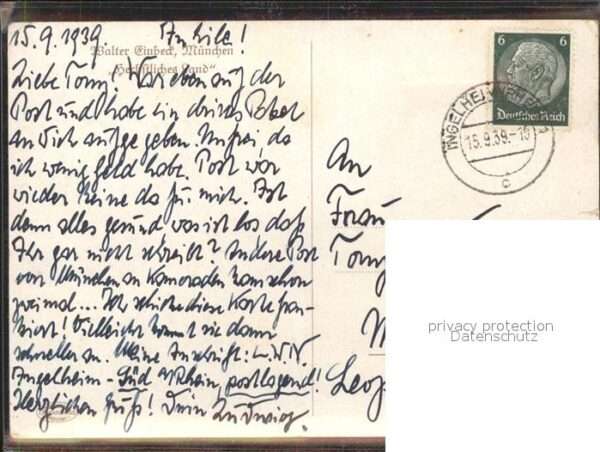 15.9.1939. In Eile!
Walter Einbeck, München
„Herbstliches Land"
Liebe Tony! War eben auf der
Post und habe ein Paket
an Dich aufgegeben. Unfrei, da
ich wenig Geld habe. Post war
wieder keine da für mich. Ist
denn alles gesund was ist los daß
Ihr gar nicht schreibt? Andere Post
von München an Kameraden kam schon
zweimal... Ich schicke diese Karte fran-
kiert! Vielleicht kommt sie dann
schneller an. Meine Anschrift: L.W.N.
Ingelheim-Süd Rhein, postlagernd!
Herzlichen Gruß! Dein Ludwig.
6 6
Deutsches Reich
INGELHEIM
15.9.39.-
c
An
Frau
Tony
M
Leop
privacy protection
Datenschutz